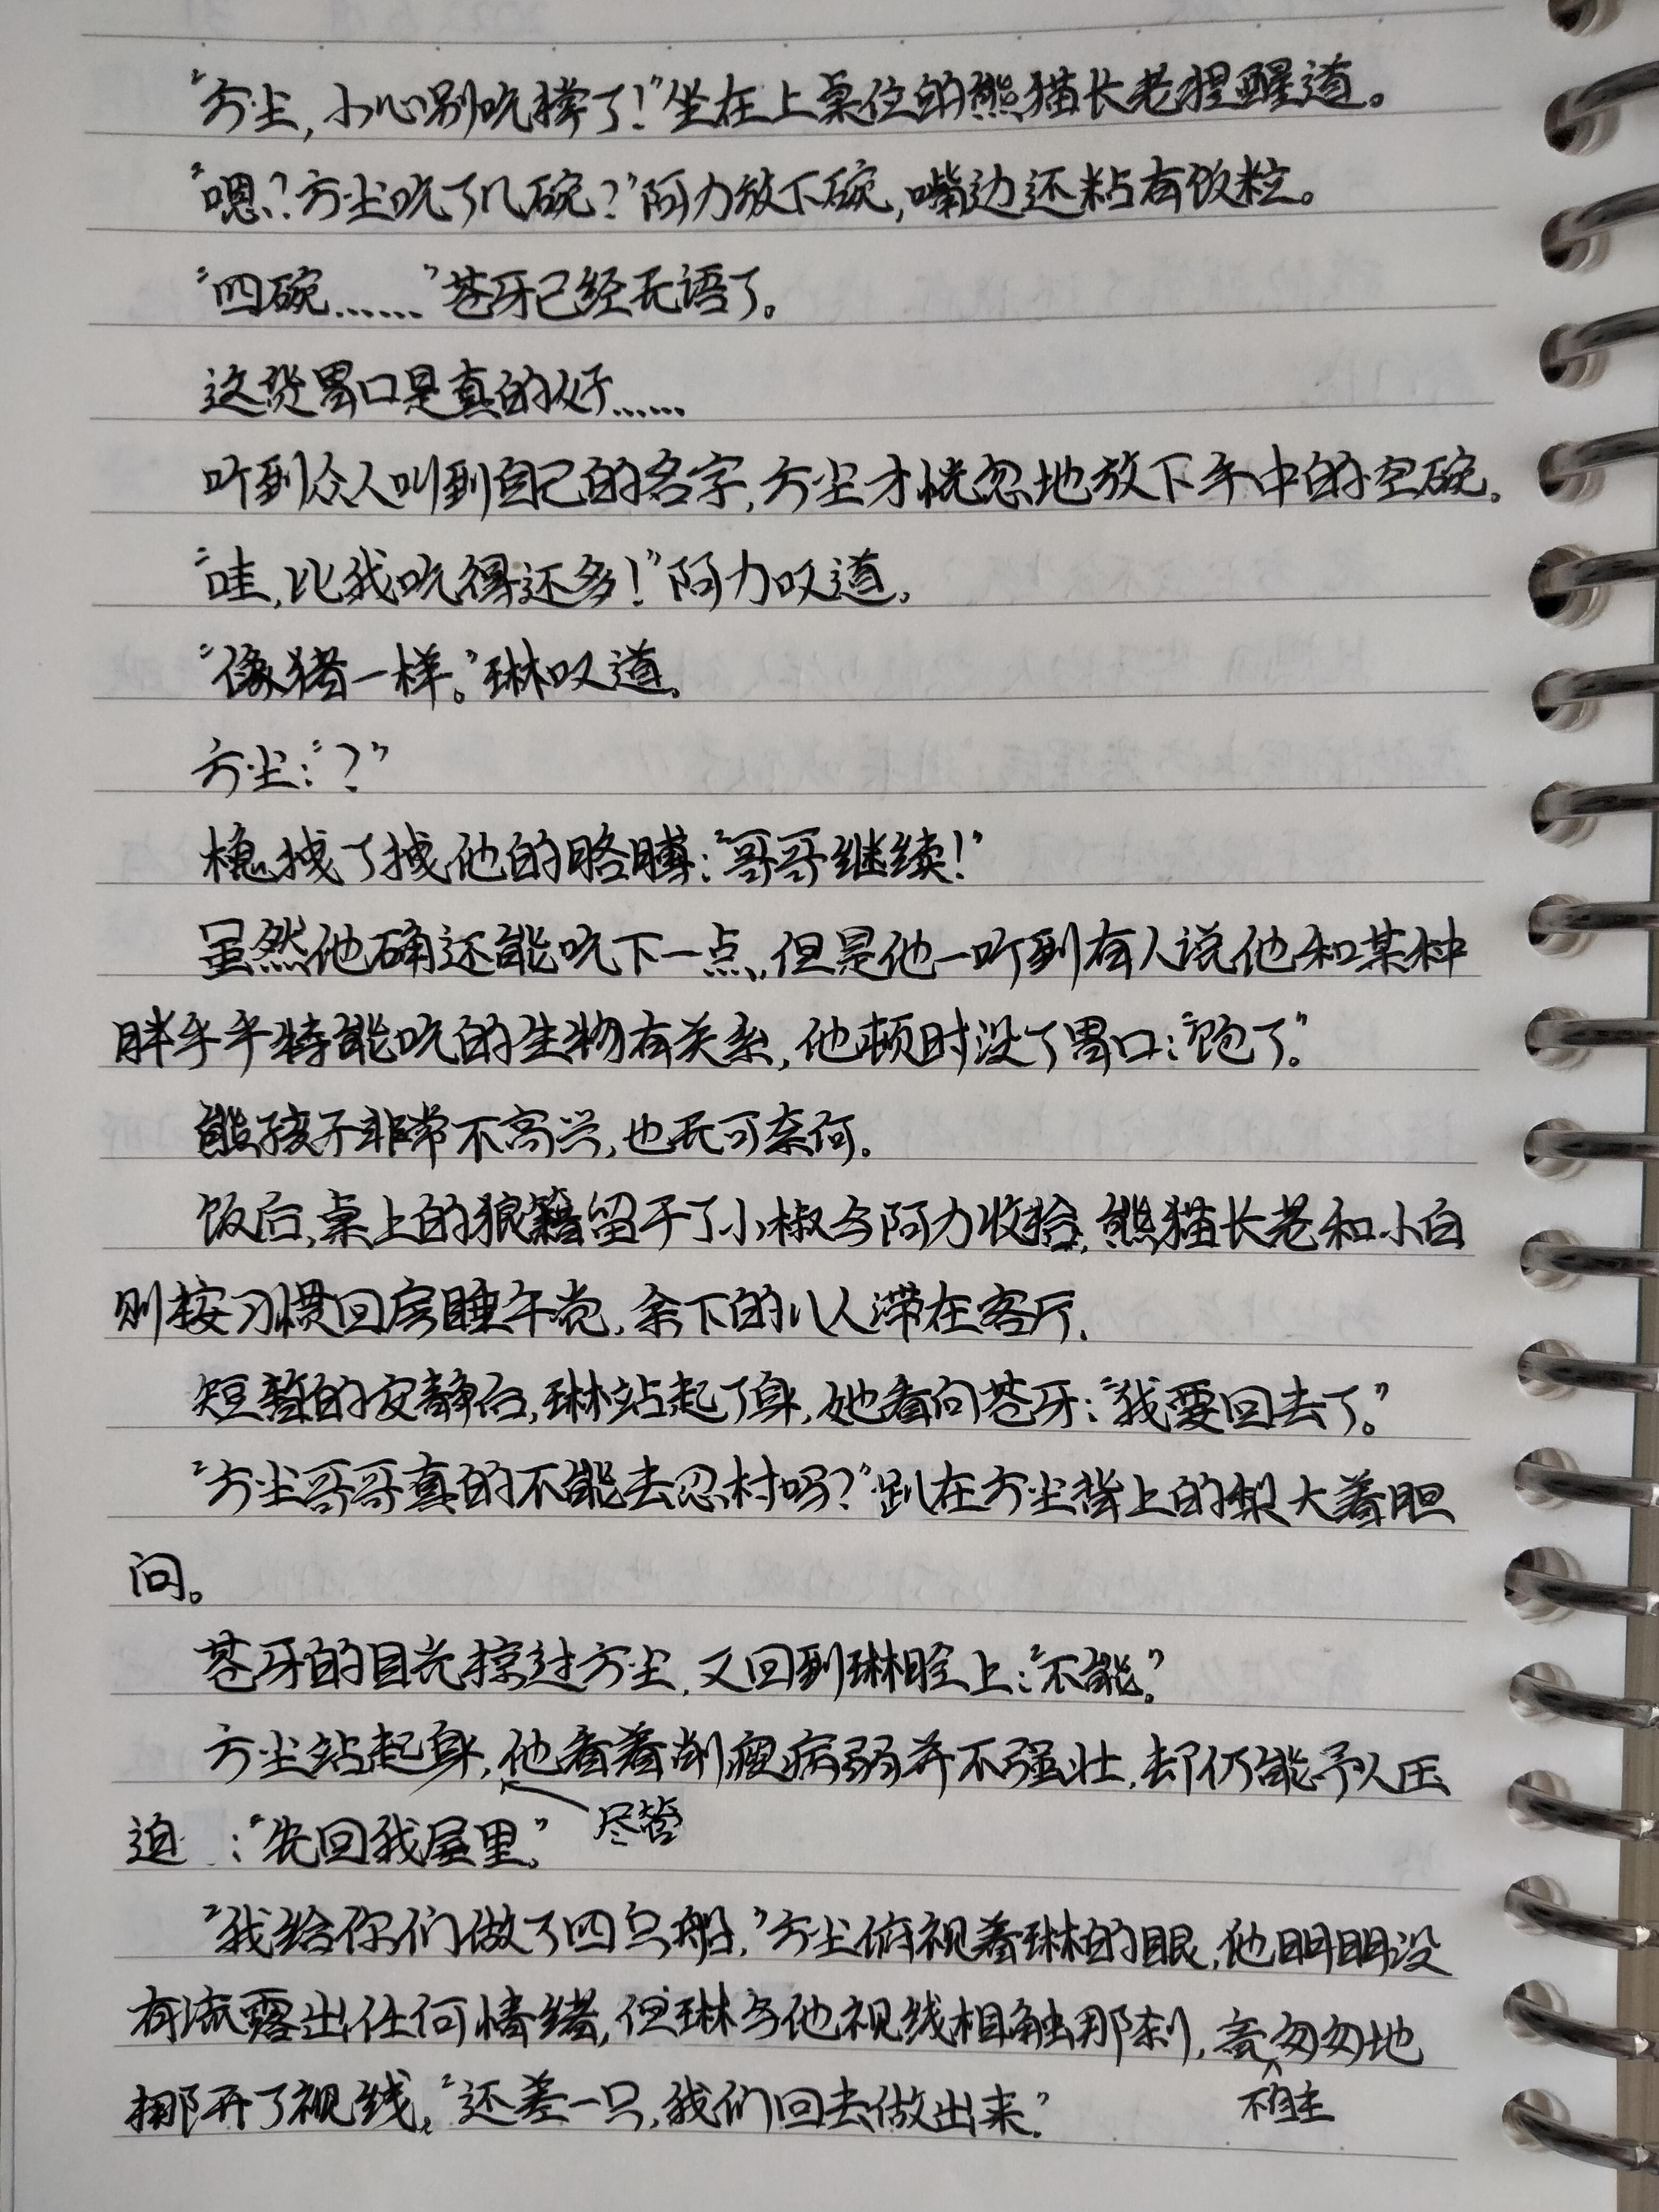 “方尘,小心别吃撑了!”坐在上桌位的熊猫长老提醒道。
“嗯?方尘吃了几碗?”阿力放下碗,嘴边还粘有饭粒。
“四碗……”苍牙已经无语了。
这货胃口是真的好……
听到众人叫到自己的名字,方尘才恍忽地放下手中的空碗。
“哇,比我吃得还多!”阿力叹道。
“像猪一样。”琳叹道。
方尘:“?”
槐拽了拽他的胳膊:“哥哥继续!”
虽然他确还能吃下一点,但是他一听到有人说他和某种
胖乎乎特能吃的生物有关系,他顿时没了胃口:“饱了。”
熊孩子非常不高兴,也无可奈何。
饭后,桌上的狼籍留予了小椒与阿力收拾,熊猫长老和小白
则按习惯回房睡午觉,余下的几人滞在客厅.
短暂的安静后,琳站起了身,她看向苍牙:“我要回去了。”
“方尘哥哥真的不能去忍村吗?”趴在方尘背上的梨大着胆
问。
苍牙的目光掠过方尘,又回到琳脸上:“不能。”
方尘站起身,他看着削瘦病弱并不强壮,却仍能予人压
尽管
迫:“先回我屋里。”
“我给你们做了四只船,”方尘俯视着琳的眼,他明明没
有流露出任何情绪,但琳与他视线相触那刹,竟匆匆地
不自主
挪开了视线,“还差一只,我们回去做出来。”